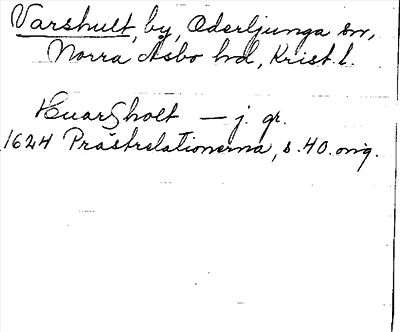 Varshult, by, Oderljunga sn,
Norra Åsbo hd, Krist. l.
Huarsholt — j. gr.
1624 Prästrelationerna, s. 40. orig.